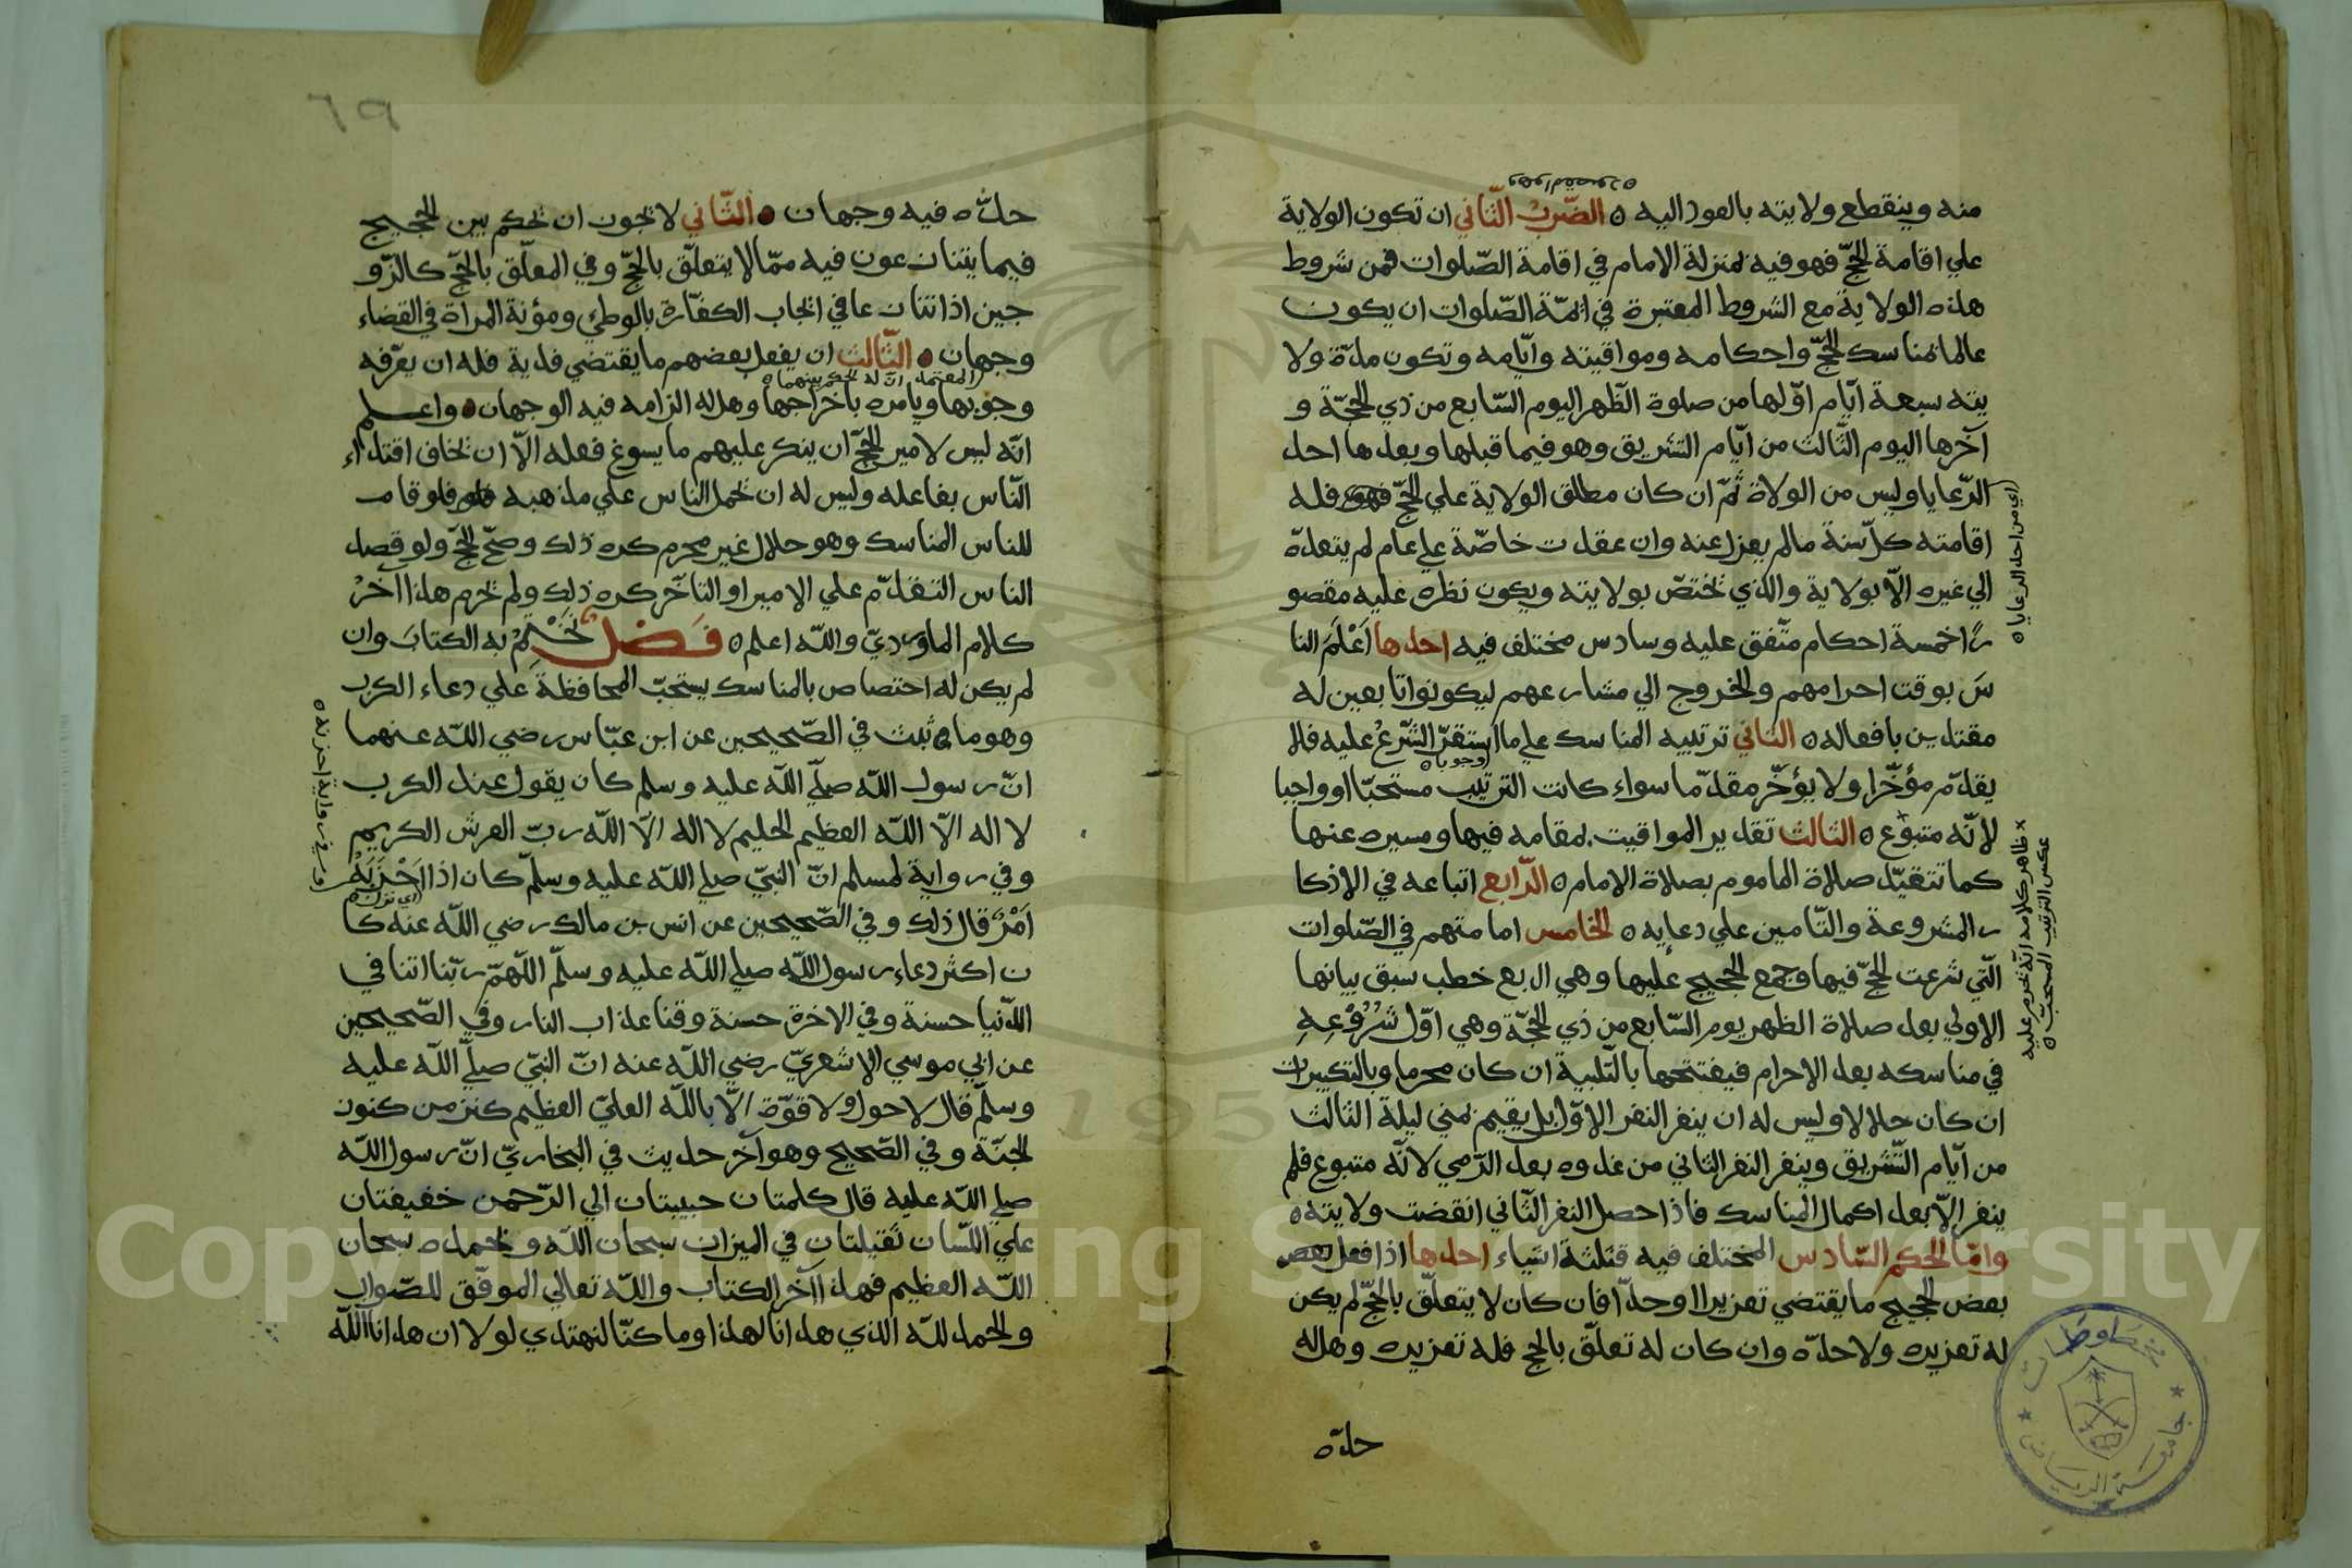 وهو المقصود ه
منه وينقطع ولايته بالعود اليه ه الضّرب الثّاني ان تكون الولاية
علي اقامة الحجّ فهو فيه بمنزلة الامام في اقامة الصّلوات فمن شروط
هذه الولاية مع الشروط المعتبرة في ائمّة الصّلوات ان يكون
عالما بمناسك الحجّ واحكامه ومواقيته وايّامه وتكون مدّة ولا
يته سبعة ايّام اوّلها من صلوة الظّهر اليوم السّابع من ذي الحجّة و
آخرها اليوم الثّالث من ايّام التشريق وهو فيما قبلها وبعدها احد
الرّعايا وليس من الولاة ثمّ ان كان مطلق الولاية علي الحجّ فله
اقامته كلّ سنة مالم يعزل عنه وان عقدت خاصّة علي عام لم يتعدّه
الي غيره الّا بولاية والذي يختصّ بولايته ويكون نظره عليه مقصو
رًا خمسة احكام متّفق عليه وسادس مختلف فيه احدها اَعْلَمَ النا
سَ بوقت احرامهم والخروج الي مشاعرهم ليكونوا تابعين له
مقتدين بافعاله ه الثاني ترتيبه المناسك علي ما استقرّ الشّرعُ عليه فلا
وجوبا ه
يقدّم مؤخّرا ولا يؤخّر مقدّما سواء كانت الترتيب مستحبّا او واجبا
لانّه متبوع ه الثالث تقدير المواقيت بمقامه فيها ومسيره عنها
كما تتقيّد صلاة الماموم بصلاة الامام ه الرّابع اتباعه في الاذكا
ر المشروعة والتّامين علي دعايه ه الخامس امامتهم في الصّلوات
الّتي شرعت الحجّ فيها وجمع الحجيج عليها وهي اربع خطب سبق بيانها
الاولي بعد صلاة الظهر يوم السّابع من ذي الحجّة وهي اوّل شُرُوعِهِ
في مناسكه بعد الاحرام فيفتتحها بالتّلبية ان كان محرما وبالتكبيرات
ان كان حلالا وليس له ان ينفر النفر الاوّل بل يقيم بمني ليلة الثالث
من ايّام التّشريق وينفر النفر الثاني من غده بعد الرّمي لانّه متبوع فلم
ينفر الّا بعد اكمال المناسك فاذا حصل النفر الثّاني انقضت ولايته ه
وامّا الحكم السّادس المختلف فيه فثلثة اشياء احدها اذا فعل
بعض الحجيج ما يقتضي تعزيرا اوحدّا فان كان لا يتعلّق بالحجّ لم يكن
له تعزيره ولا حدّه وان كان له تعلّق بالحج فله تعزيره وهل له
حدّه
اي من احد الرعايا ه
ظاهر كلامه انّه تحرم عليه
عكس الترتيب المستحبّ ه
٦٩
حدّه فيه وجهان ه الثّاني لا يجوز ان يحكم بين الحجيج
فيما يتنازعون فيه ممّا لا يتعلّق بالحجّ وفي المعلّق بالحجّ كالزّو
جين اذا تنازعا في ايجاب الكفّارة بالوطئ ومؤنة المراة في القضاء
وجهان ه الثّالث ان يفعل بعضهم ما يقتضي فدية فله ان يعرّفه
المعتمد انّ له الحكم بينهما ه
وجوبها ويامره باخراجها وهل له الزامه فيه الوجهان ه واعلم
انّه ليس لامير الحجّ ان ينكر عليهم ما يسوغ فعله الّا ان يخاف اقتداء
النّاس بفاعله وليس له ان يحمل الناس علي مذهبه فلو قام
للناس المناسك وهو حلال غير محرم كره ذلك وصحّ الحجّ ولو قصد
الناس التقدّم علي الامير او التاخّر كره ذلك ولم يحرم هذا آخرُ
كلام الماورديّ والله اعلم ه فصل نَخْتِمُ به الكتابَ وان
لم يكن له اختصاص بالمناسك يستحبّ المحافظة علي دعاء الكرب
وهو ما ثبت في الصّحيحين عن ابن عبّاس رضي الله عنهما
انّ رسول الله صلّي الله عليه وسلم كان يقول عند الكرب
لا اله الّا اللّه العظيم الحليم لا اله الّا اللّه ربّ العرش الكريم
وفي رواية لمسلم انّ النبيّ صلي الله عليه وسلّم كان اذا احْزَنَهُ
اي نزل ه
اَمْرٌ قال ذلك وفي الصّحيحين عن انس بن مالك رضي الله عنه كا
ن اكثر دعاء رسول الله صلي الله عليه وسلّم اللّهمّ ربّنا اتنا في
الدّنيا حسنة وفي الاخرة حسنة وقنا عذاب النار وفي الصّحيحين
عن ابي موسي الاشعريّ رضي الله عنه انّ النبيّ صلّي الله عليه
وسلّم قال لا حول ولا قوّة الّا باللّه العليّ العظيم كنز من كنوز
الجنّة وفي الصّحيح وهو آخر حديث في البخاريّ انّ رسول الله
صلي الله عليه قال كلمتان حبيبتان الي الرّحمن خفيفتان
علي اللّسان ثقيلتان في الميزان سبحان الله وبحمده سبحان
اللّه العظيم فهذا آخر الكتاب واللّه تعالي الموفّق للصّواب
والحمد للّه الذي هدانا لهذا وما كنّا لنهتدي لولا ان هدانا اللّه
وفي رواية احزنه ه
جامعة الرياض
مخطوطات
Copyright © King Saud University
195